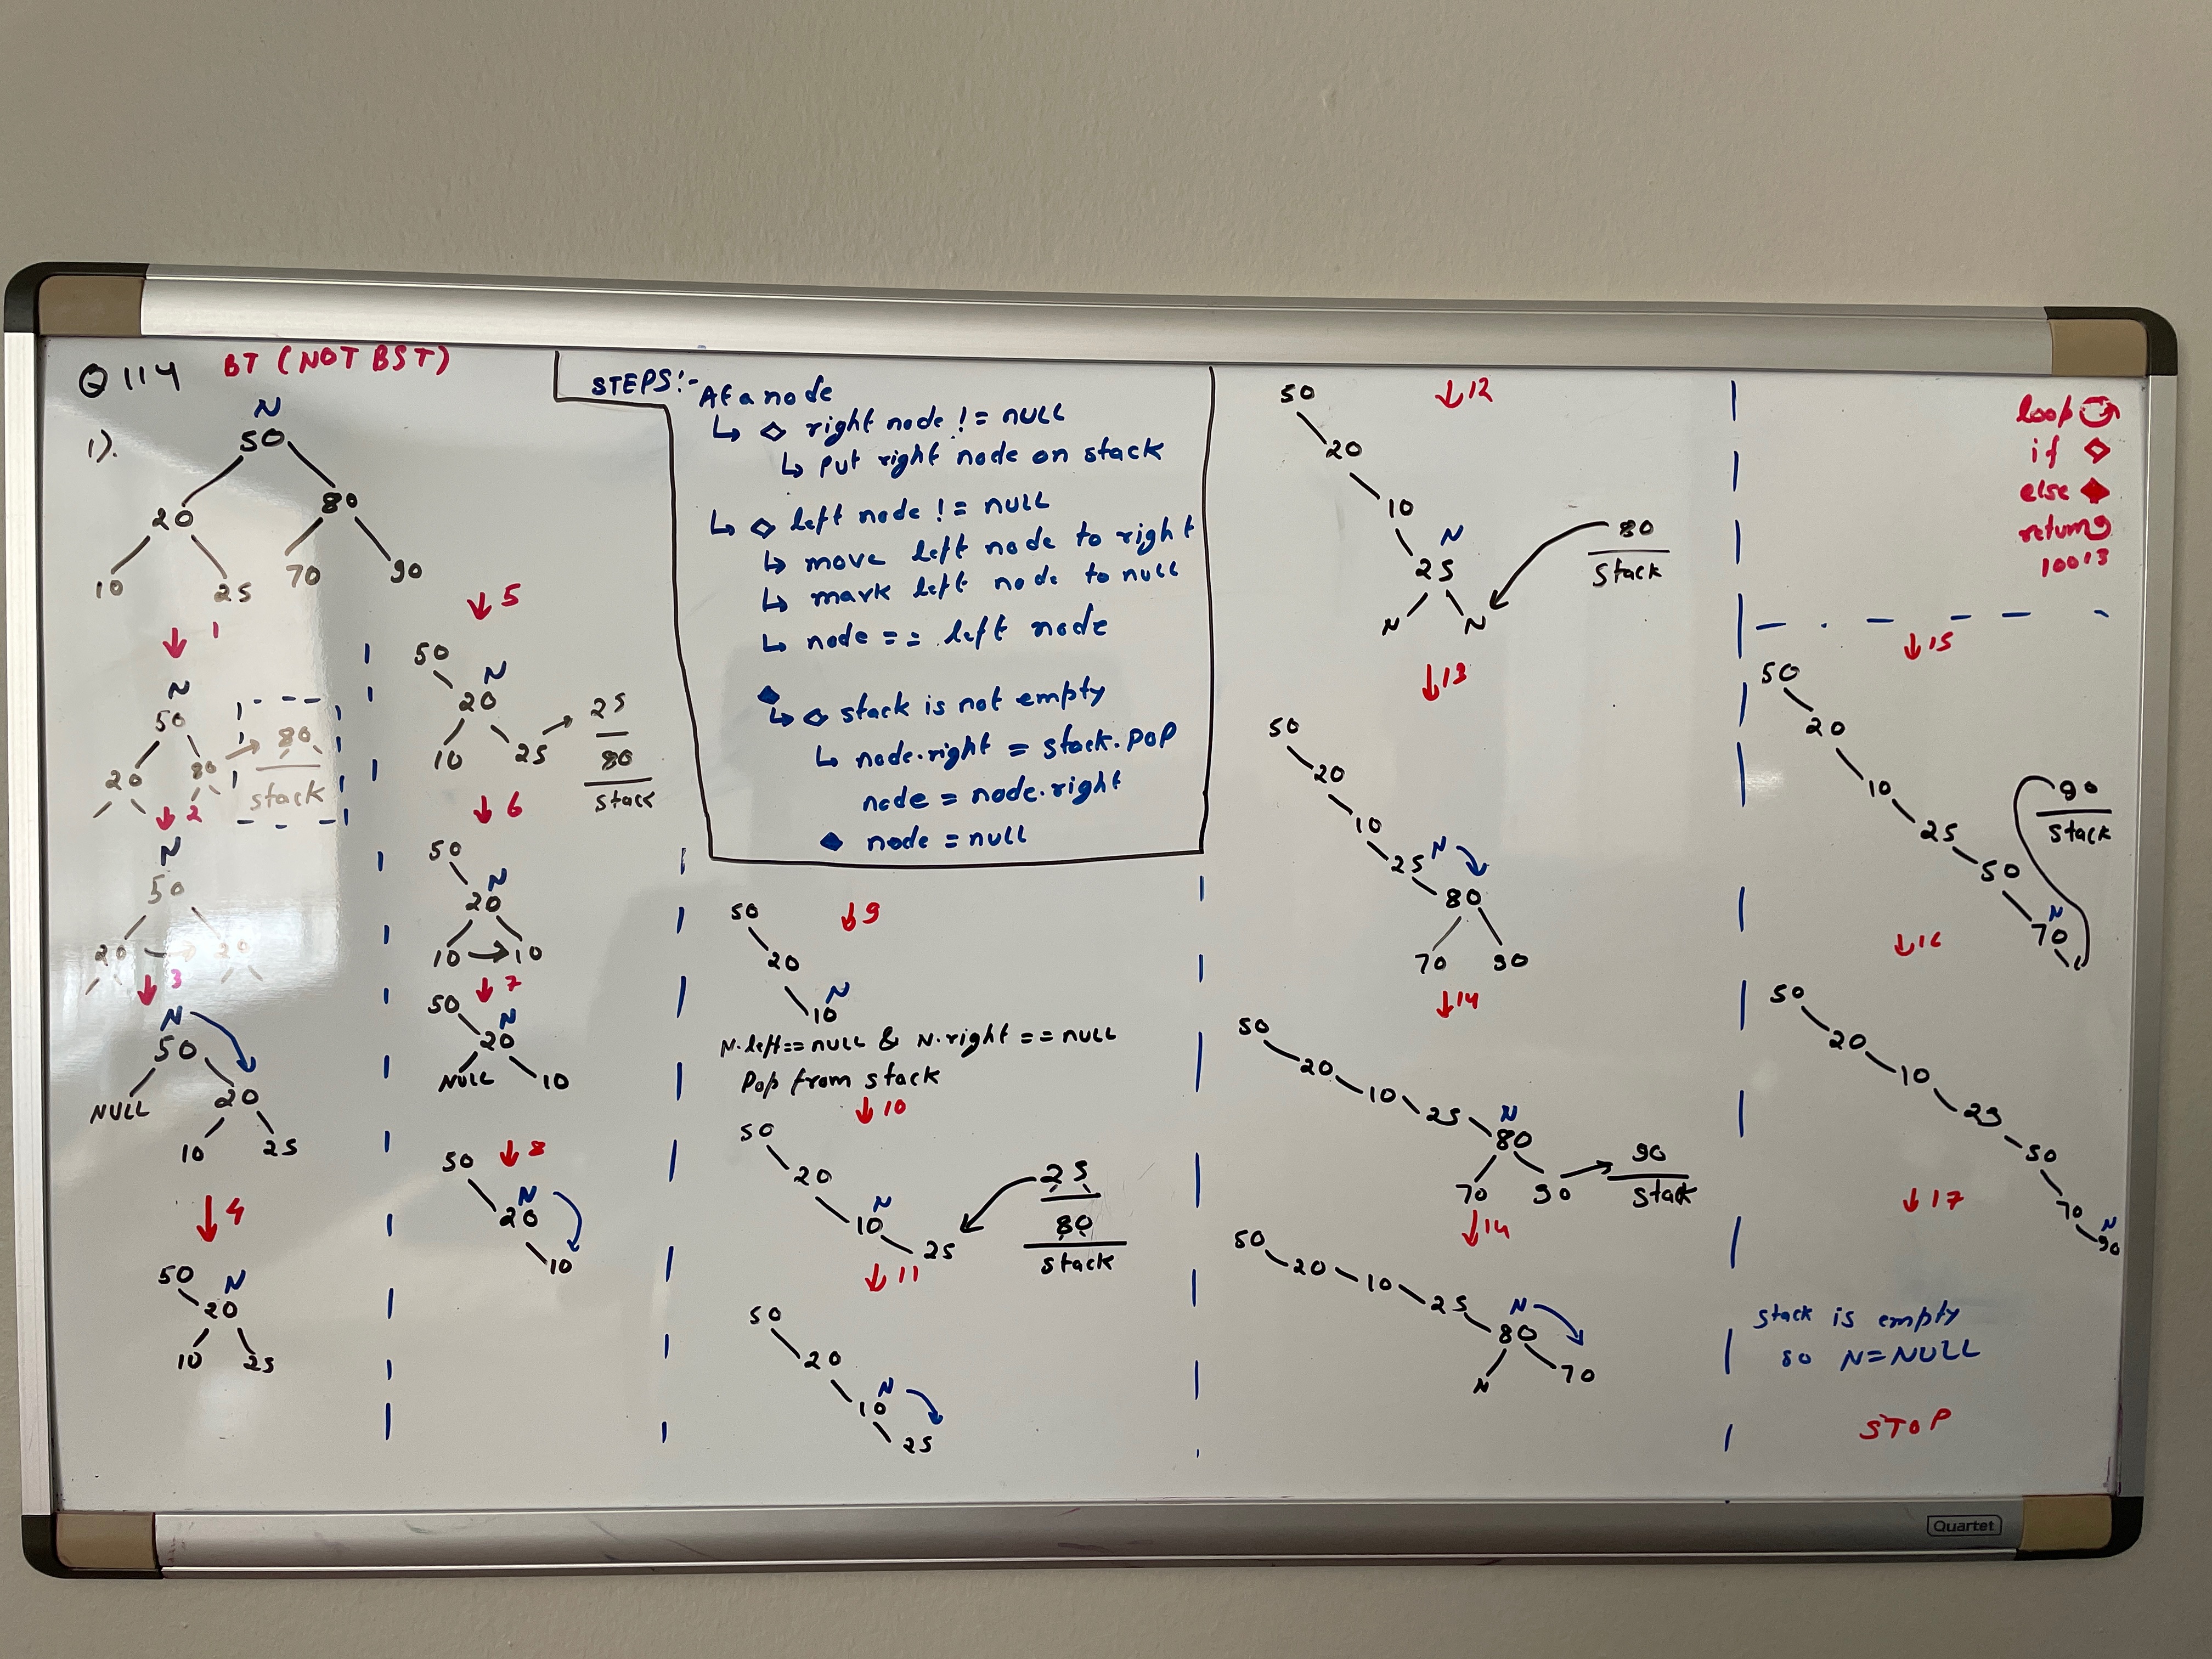 Q 114 BT (NOT BST)
1). N
50
20 80
10 25 70 90
↓ 1
N
50
20 80 → 80
stack
↓ 2
N
50
20 → 20
↓ 3
N
50
NULL 20
10 25
↓ 4
50 N
20
10 25
↓ 5
50 N
20
10 25 → 25
80
stack
↓ 6
50 N
20
10 → 10
↓ 7
50 N
20
NULL 10
↓ 8
50 N
20
10
STEPS:- At a node
↳ ◇ right node != null
↳ put right node on stack
↳ ◇ left node != null
↳ move left node to right
↳ mark left node to null
↳ node == left node
◆
↳ ◇ stack is not empty
↳ node.right = stack.pop
node = node.right
◆ node = null
↓ 9
50
20
N
10
N.left == null & N.right == null
Pop from stack
↓ 10
50
20
N
10 25
25
80
stack
↓ 11
50
20
N
10
25
↓ 12
50
20
10
N
25
N N
80
stack
↓ 13
50
20
10
25 N
80
70 90
↓ 14
50
20
10
25 N
80
70 90 → 90
stack
↓ 14
50
20
10
25 N
80
N 70
loop
if ◇
else ◆
return
10013
↓ 15
50
20
10
25
50
N
70
90
stack
↓ 16
50
20
10
25
50
70 N
90
↓ 17
stack is empty
so N = NULL
STOP
Quartet